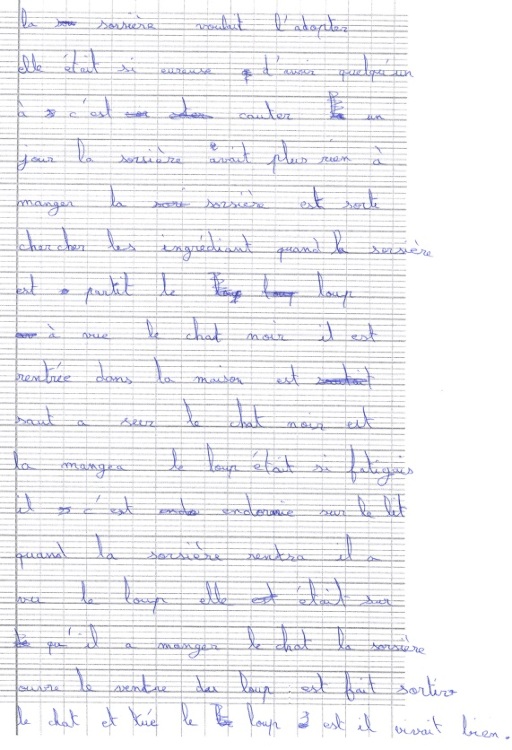 la sorsière voulait l'adopter
elle était si eureuse d'avoir quelqu'un
à c'est cauter un
jour la sorsière avait plus rien à
manger la sorsière est sorte
chercher les ingrédiant quand la sorsière
est partit le loup
à vue le chat noir il est
rentrée dans la maison est
saut a seur le chat noir est
la mangea le loup était si fatigais
il c'est endormie sur le lit
quand la sorsière rentra il a
vu le loup elle était sur
qu'il a manger le chat la sorsière
ouvre le ventre du loup est fait sortir
le chat et tué le loup est il vivait bien.